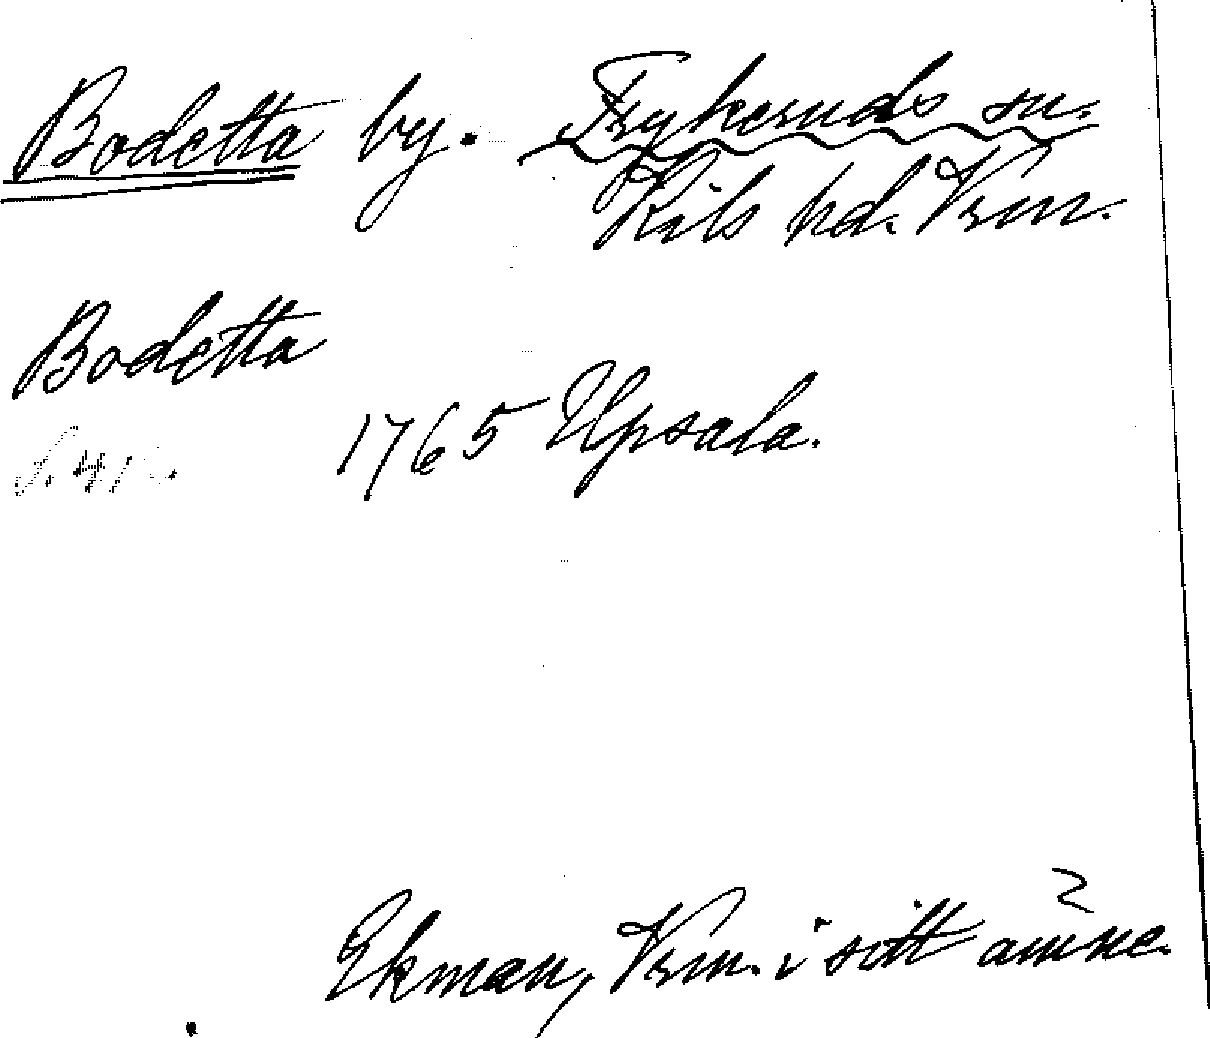 Bodetta by. Frykeruds sn.
Kils hd. Vrm.
Bodetta
1765 Upsala.
S. 41
Ekman, Vrm. i sitt ämne.